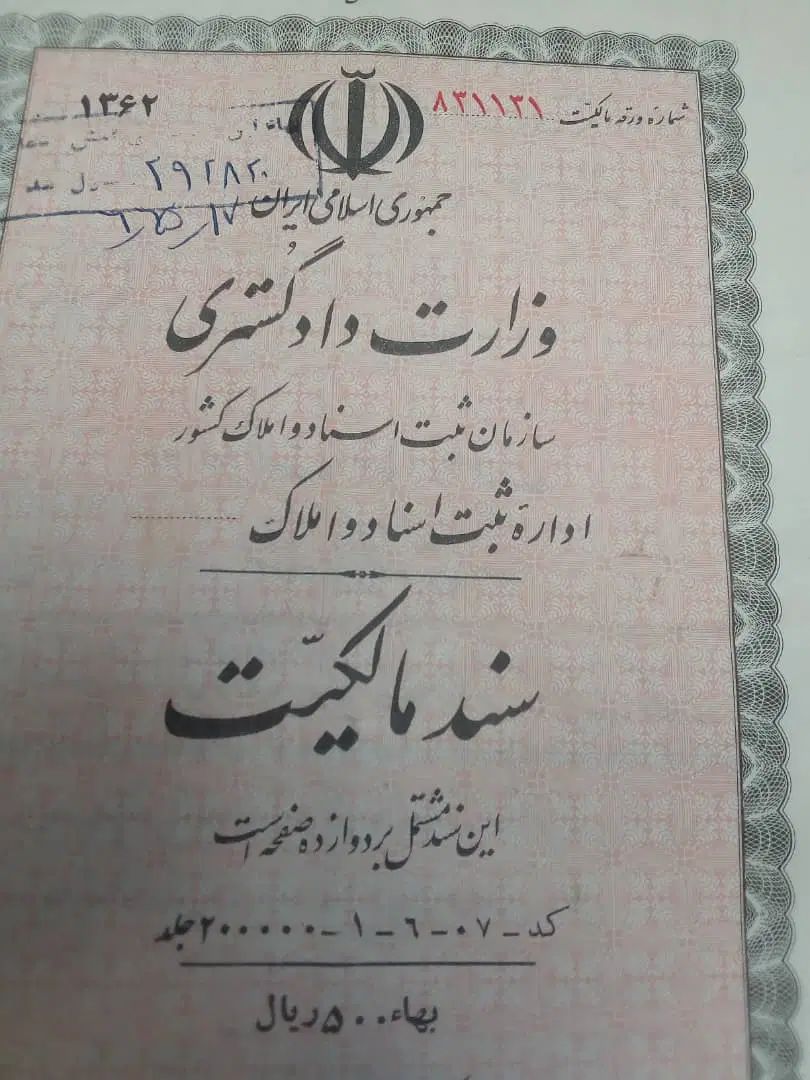 شماره ورقه مالکیت ۸۳۱۱۳۱
۱۳۶۲
۲۹۲۸۲۰
جمهوری اسلامی ایران
وزارت دادگستری
سازمان ثبت اسناد و املاک کشور
اداره ثبت اسناد و املاک
سند مالکیّت
این سند مشتمل بر دوازده صفحه است
کد ـ ۰۷ ـ ۶ ـ ۱ ـ ۲۰۰۰۰۰ جلد
بهاء ۵۰۰ ریال